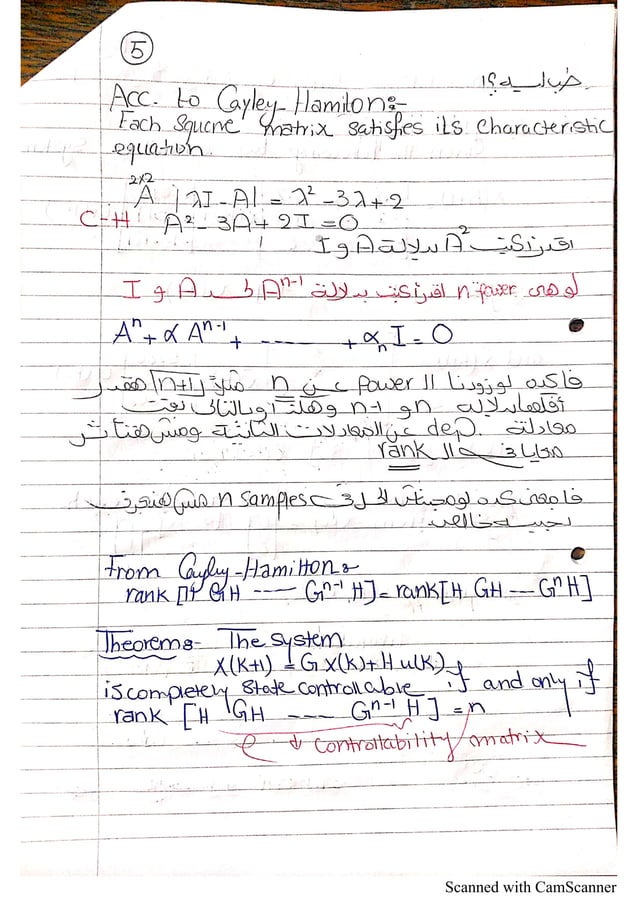 5
طب ليه؟!
Acc. to Cayley-Hamilton:-
Each square matrix satisfies its characteristic
equation.
2x2
A |λI - A| = λ² - 3λ + 2
C-H A² - 3A + 2I = 0
اقدر اكتب A² بدلالة A و I
لو هى n power اقدر اكتب بدلالة Aⁿ⁻¹ لحد A و I
Aⁿ + α Aⁿ⁻¹ + ------ + αₙ I = 0
فا كده لو زودنا الـ power عن n مثلاً n+1 هقدر
n و n-1 وهكذا وبالتالى
معادلة dep. عن المعادلات التانية ومش هتأثر
معايا فى الـ rank
n samples مش هنعرف
نجيبه خالص
From Cayley-Hamilton:
rank [H GH ---- Gⁿ⁻¹ H] = rank [H GH --- GⁿH]
Theorem:- The system
X(K+1) = G X(K) + H u(K)
is completely state controllable if and only if
rank [H GH ---- Gⁿ⁻¹ H] = n
↓ controllability matrix
Scanned with CamScanner